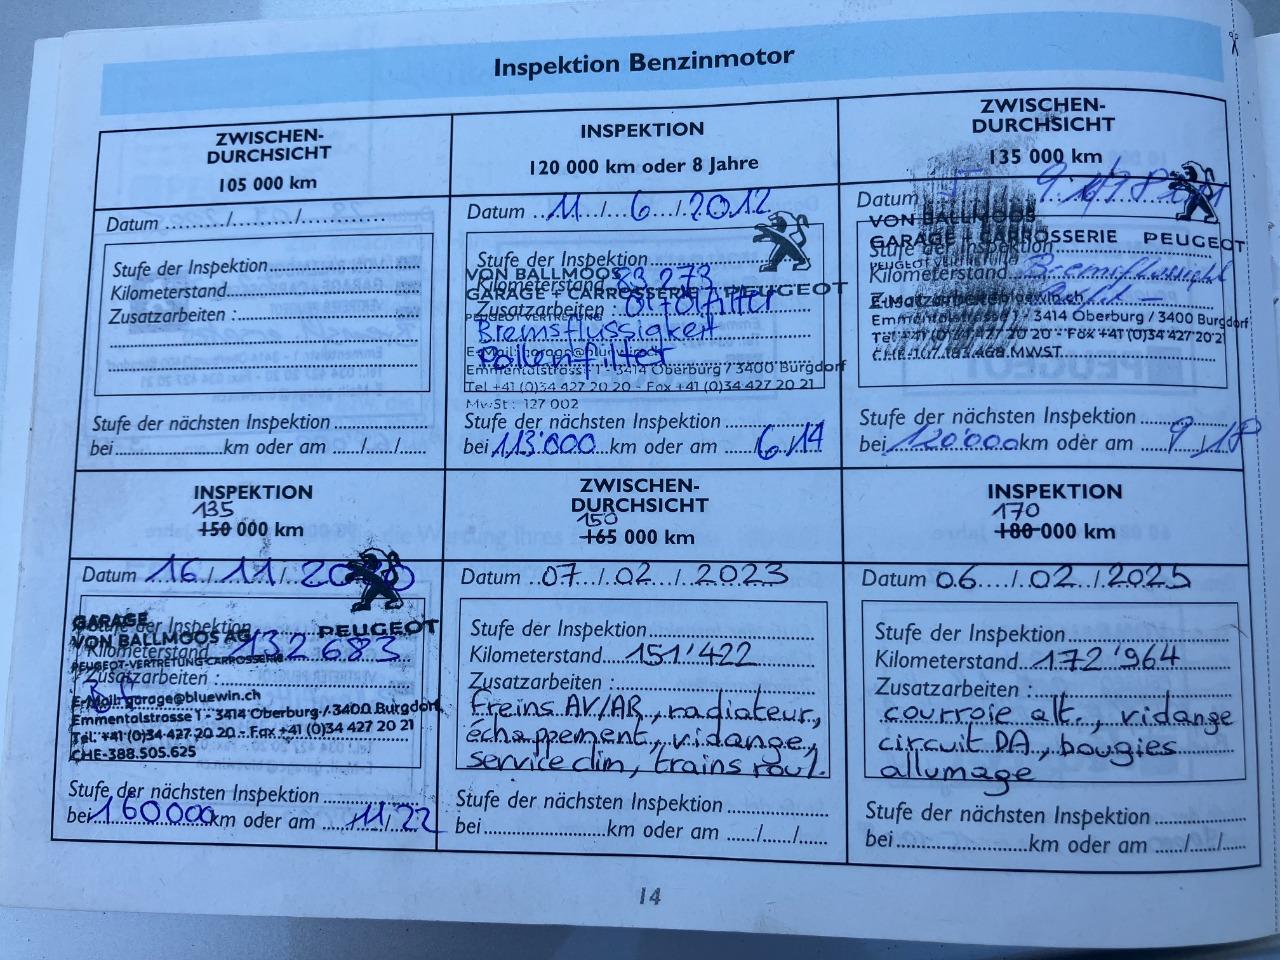 Inspektion Benzinmotor
ZWISCHEN-
DURCHSICHT
105 000 km
Datum ......../......../................
Stufe der Inspektion
Kilometerstand
Zusatzarbeiten :
Stufe der nächsten Inspektion
bei ........ km oder am ..../..../....
INSPEKTION
120 000 km oder 8 Jahre
Datum 11 / 6 / 2012
Stufe der Inspektion
VON BALLMOOS
Kilometerstand 83 273
GARAGE + CARROSSERIE PEUGEOT
Zusatzarbeiten : Öl + Ölfilter
PEUGEOT-VERTRETUNG
Bremsflüssigkeit
Pollenfilter
Emmentalstrasse 1 - 3414 Oberburg / 3400 Burgdorf
Tel +41 (0)34 427 20 20 - Fax +41 (0)34 427 20 21
MwSt : 127 002
Stufe der nächsten Inspektion
bei 113'000 km oder am 6/14
ZWISCHEN-
DURCHSICHT
135 000 km
Datum
VON BALLMOOS
GARAGE + CARROSSERIE PEUGEOT
Stufe der Inspektion
Kilometerstand Bremsflüssigkeit
Emmentalstrasse 1 - 3414 Oberburg / 3400 Burgdorf
Tel +41 (0)34 427 20 20 - Fax +41 (0)34 427 20 21
MWST.
Stufe der nächsten Inspektion
bei 120'000 km oder am 9/18
INSPEKTION
135
150 000 km
Datum 16 / 11 / 2020
GARAGE
Stufe der Inspektion
VON BALLMOOS AG PEUGEOT
Kilometerstand 132 683
PEUGEOT-VERTRETUNG-CARROSSERIE
Zusatzarbeiten :
E-Mail: garage@bluewin.ch
Emmentalstrasse 1 - 3414 Oberburg / 3400 Burgdorf
Tel: +41 (0)34 427 20 20 - Fax +41 (0)34 427 20 21
CHE-388.505.625
Stufe der nächsten Inspektion
bei 160000 km oder am 11/22
ZWISCHEN-
DURCHSICHT
150
165 000 km
Datum 07 / 02 / 2023
Stufe der Inspektion
Kilometerstand 151'422
Zusatzarbeiten :
Freins AV/AR, radiateur,
échappement, vidange,
service clim, trains roul.
Stufe der nächsten Inspektion
bei ........ km oder am ..../..../....
INSPEKTION
170
180 000 km
Datum 06 / 02 / 2025
Stufe der Inspektion
Kilometerstand 172'964
Zusatzarbeiten :
courroie alt., vidange
circuit DA, bougies
allumage
Stufe der nächsten Inspektion
bei ........ km oder am ..../..../....
14